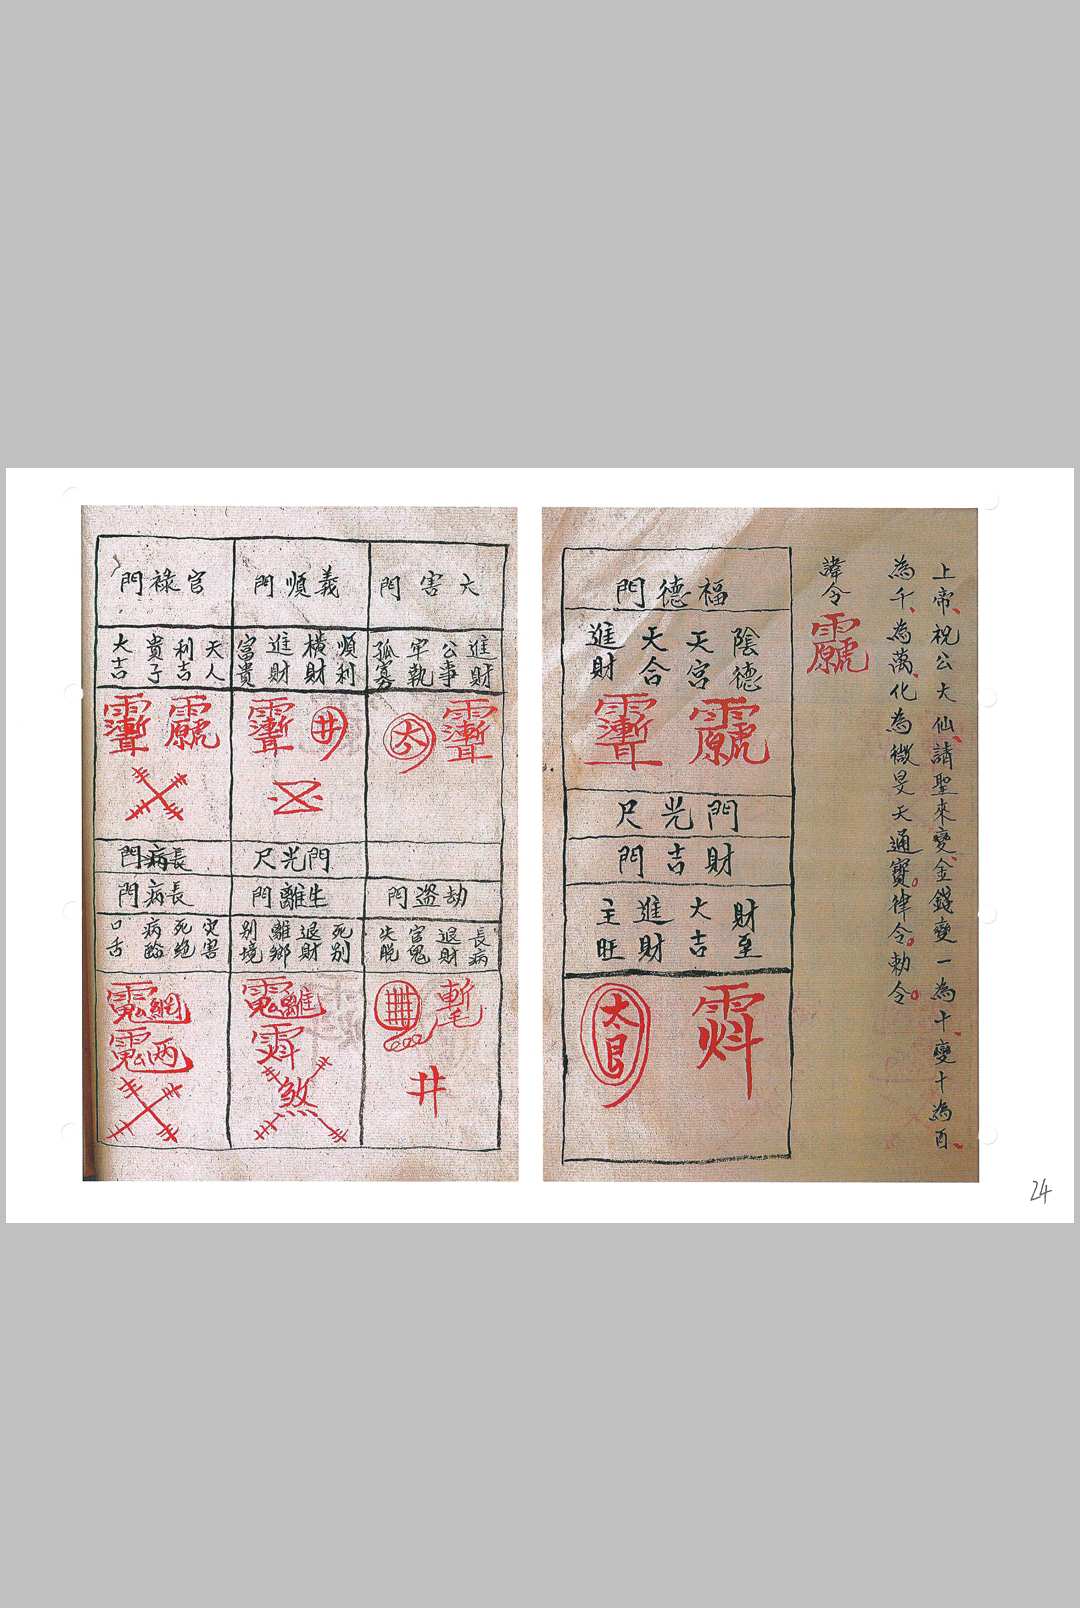 上帝祝公大仙請聖來變金錢變一為十變十為百
為千為萬化為微旻天通寶律令勅令
諱令
福德門
陰德 天宮 天合 進財
門光尺
財吉門
財至 大吉 進財 主旺
太艮
大害門
進財 公事 牢執 孤寡
劫盜門
長病 退財 官鬼 失脫
井
義順門
順利 橫財 進財 富貴
井
門光尺
生離門
死別 退財 離鄉 別境
煞
官祿門
天人 利吉 貴子 大吉
長病門
長病門
災害 死絕 病臨 口舌
24